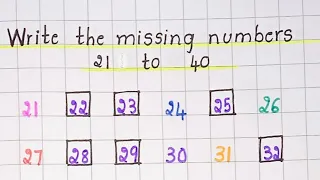 Write the missing numbers
21 to 40
21 22 23 24 25 26
27 28 29 30 31 32